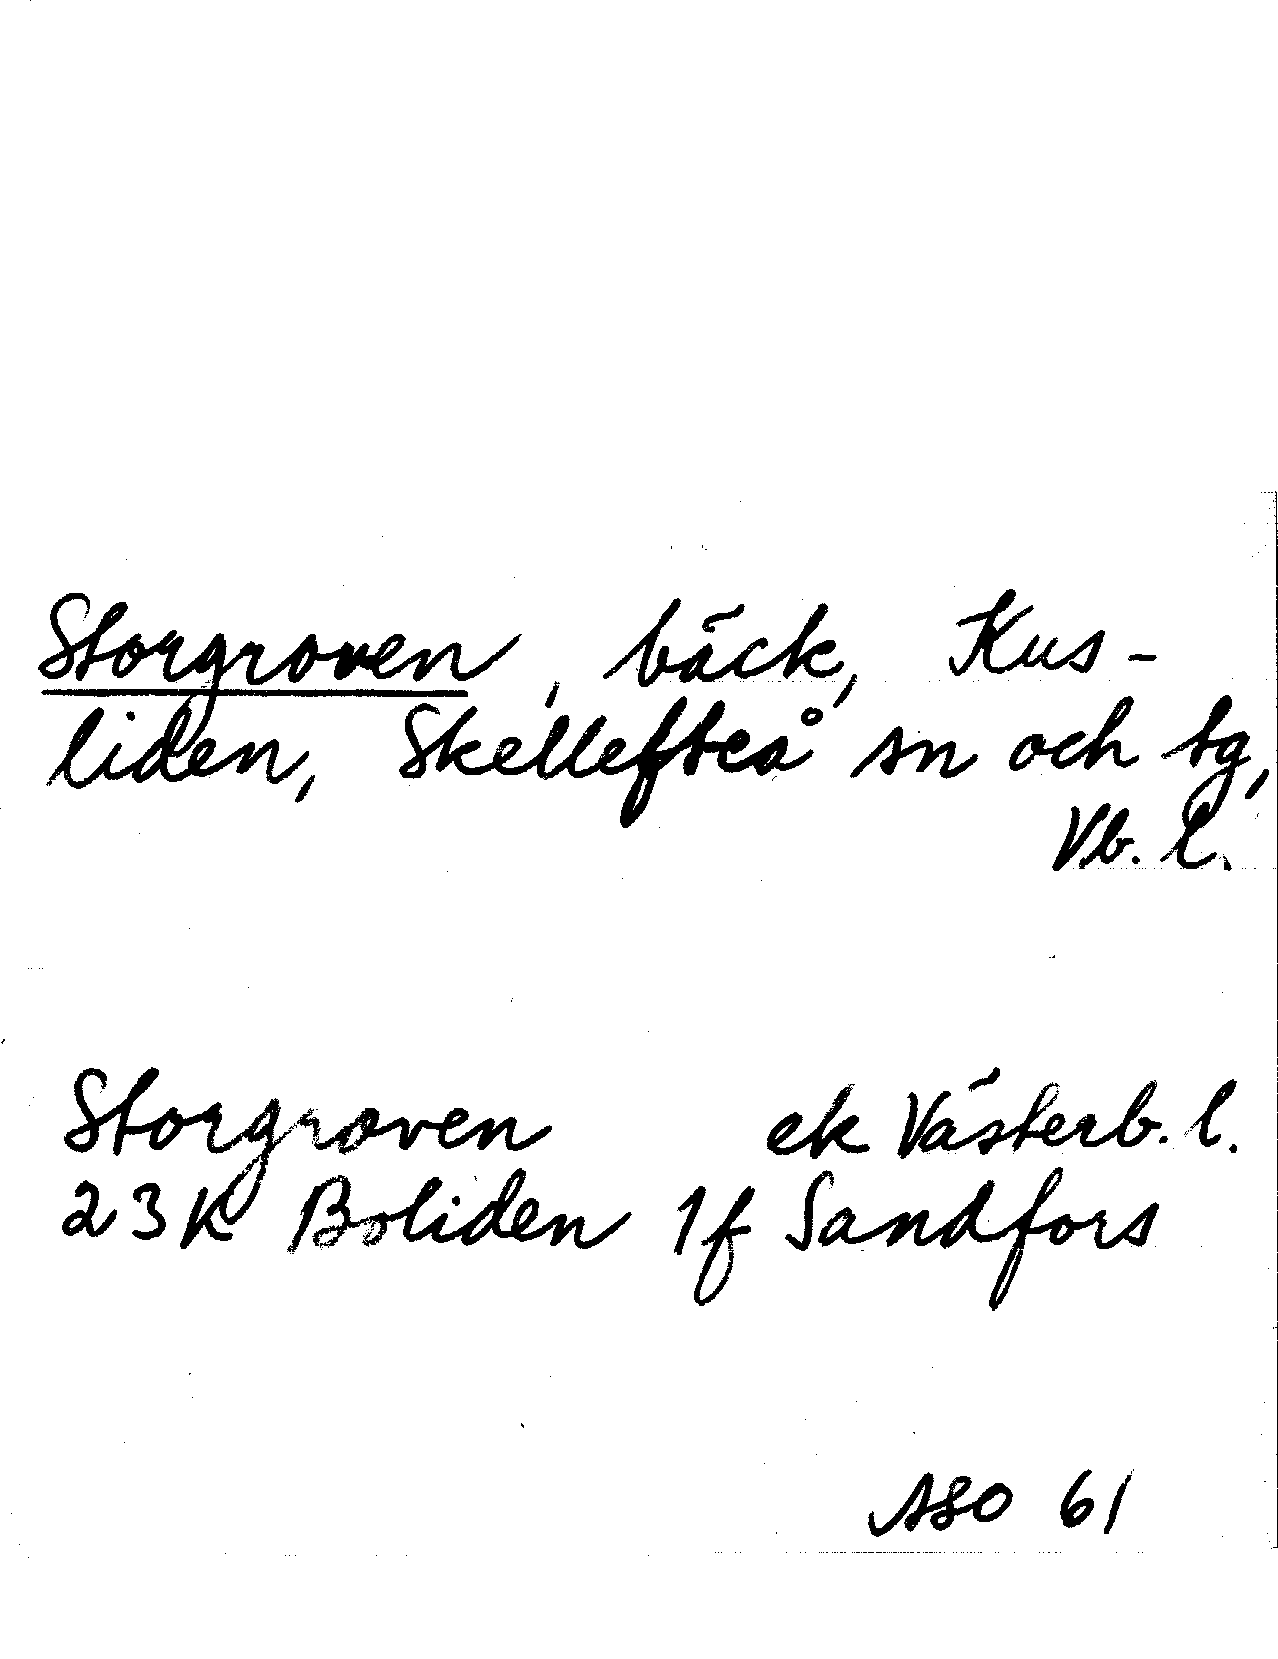 Storgroven, bäck, Kus-
liden, Skellefteå sn och tg,
Vb. l.
Storgroven ek Västerb. l.
23K Boliden 1f Sandfors
ASO 61